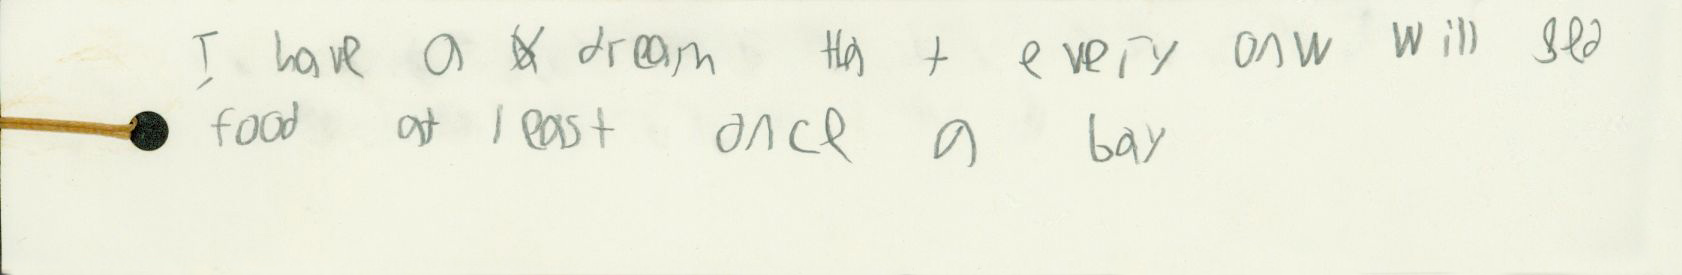 I have a dream that every onw will ged
food at least once a bay